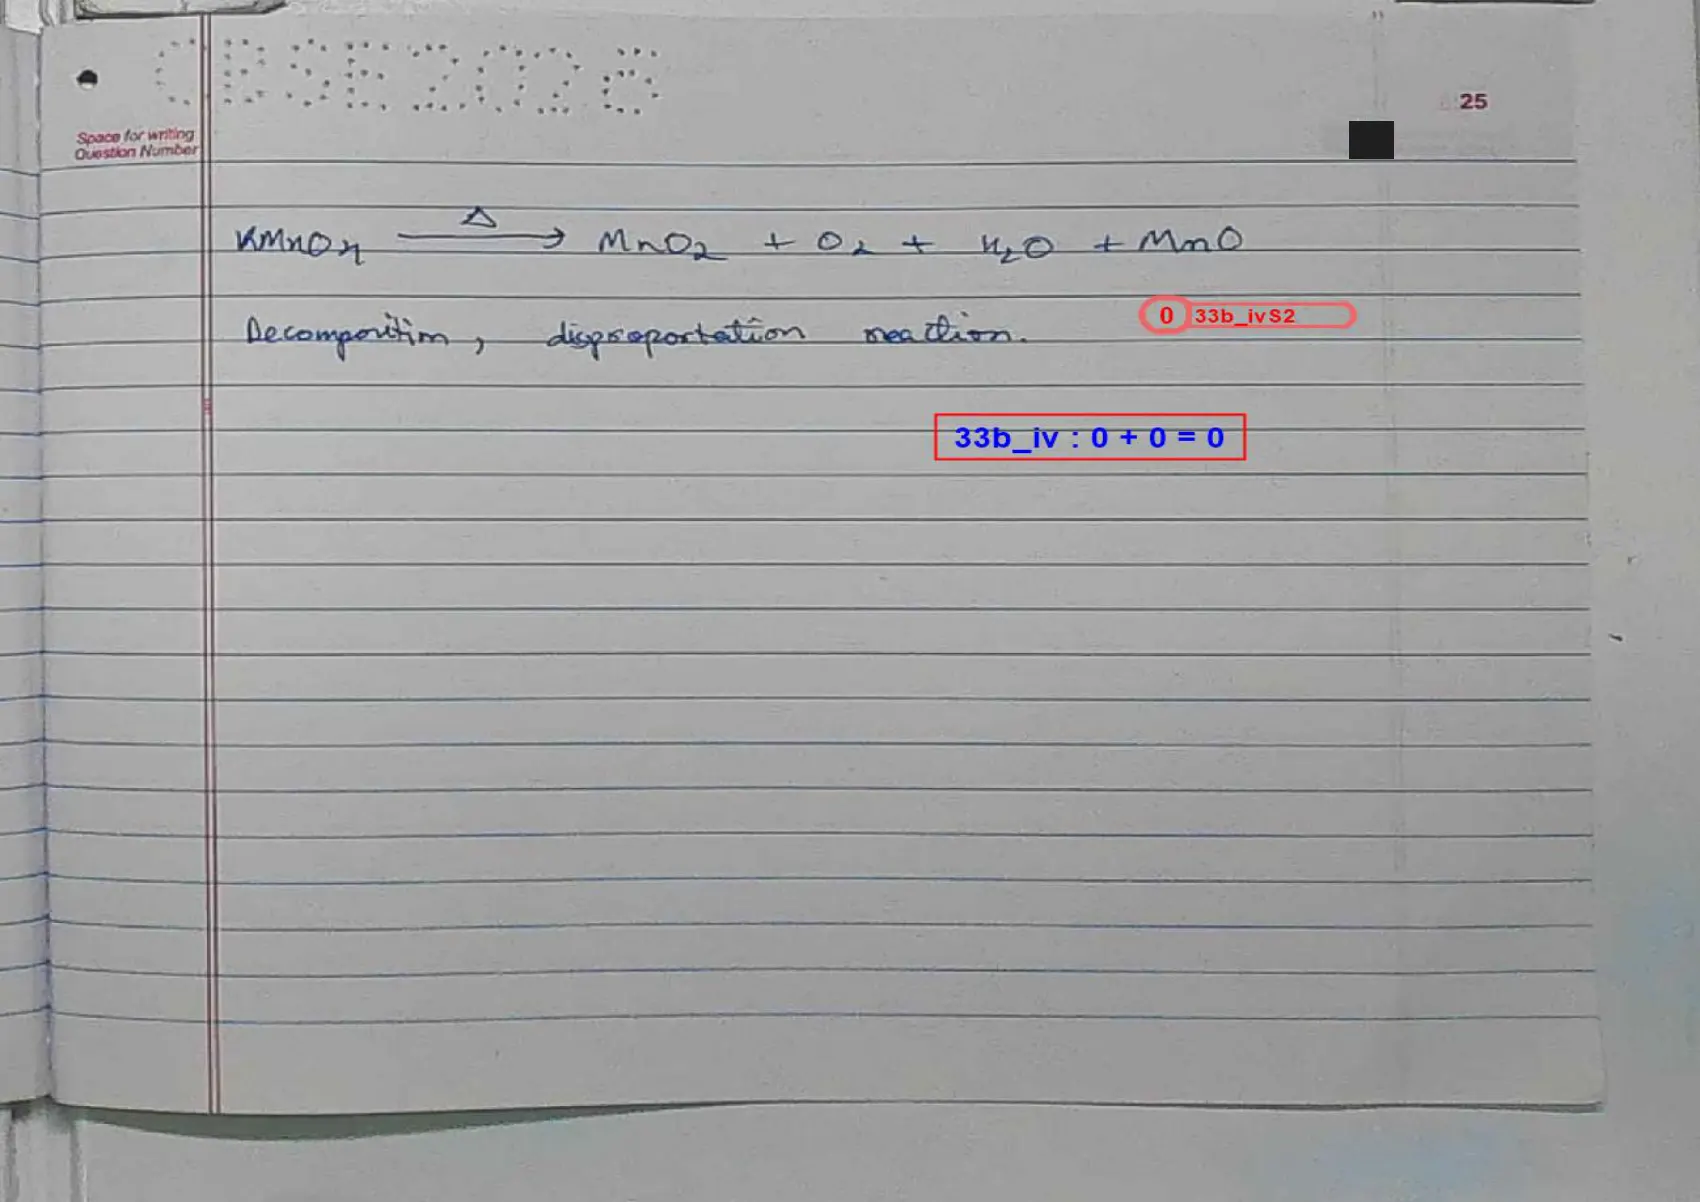 CBSE 2026
25
Space for writing
Question Number
KMnO4 —Δ→ MnO2 + O2 + H2O + MnO
Decomposition, disproportation reaction.
0 33b_ivS2
33b_iv : 0 + 0 = 0